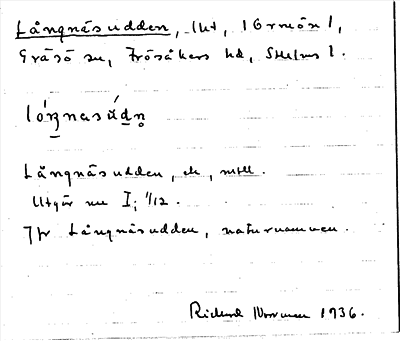 Långnäsudden, lht, 1 Ormön 1,
Gräsö sn, Frösåkers hd, Sthlms l.
lóŋnasùdn̥
Långnäsudden, ek, mtll.
Utgår nu I; 1/12.
Jfr Långnäsudden, naturnamnen.
Rickard Norrman 1936.